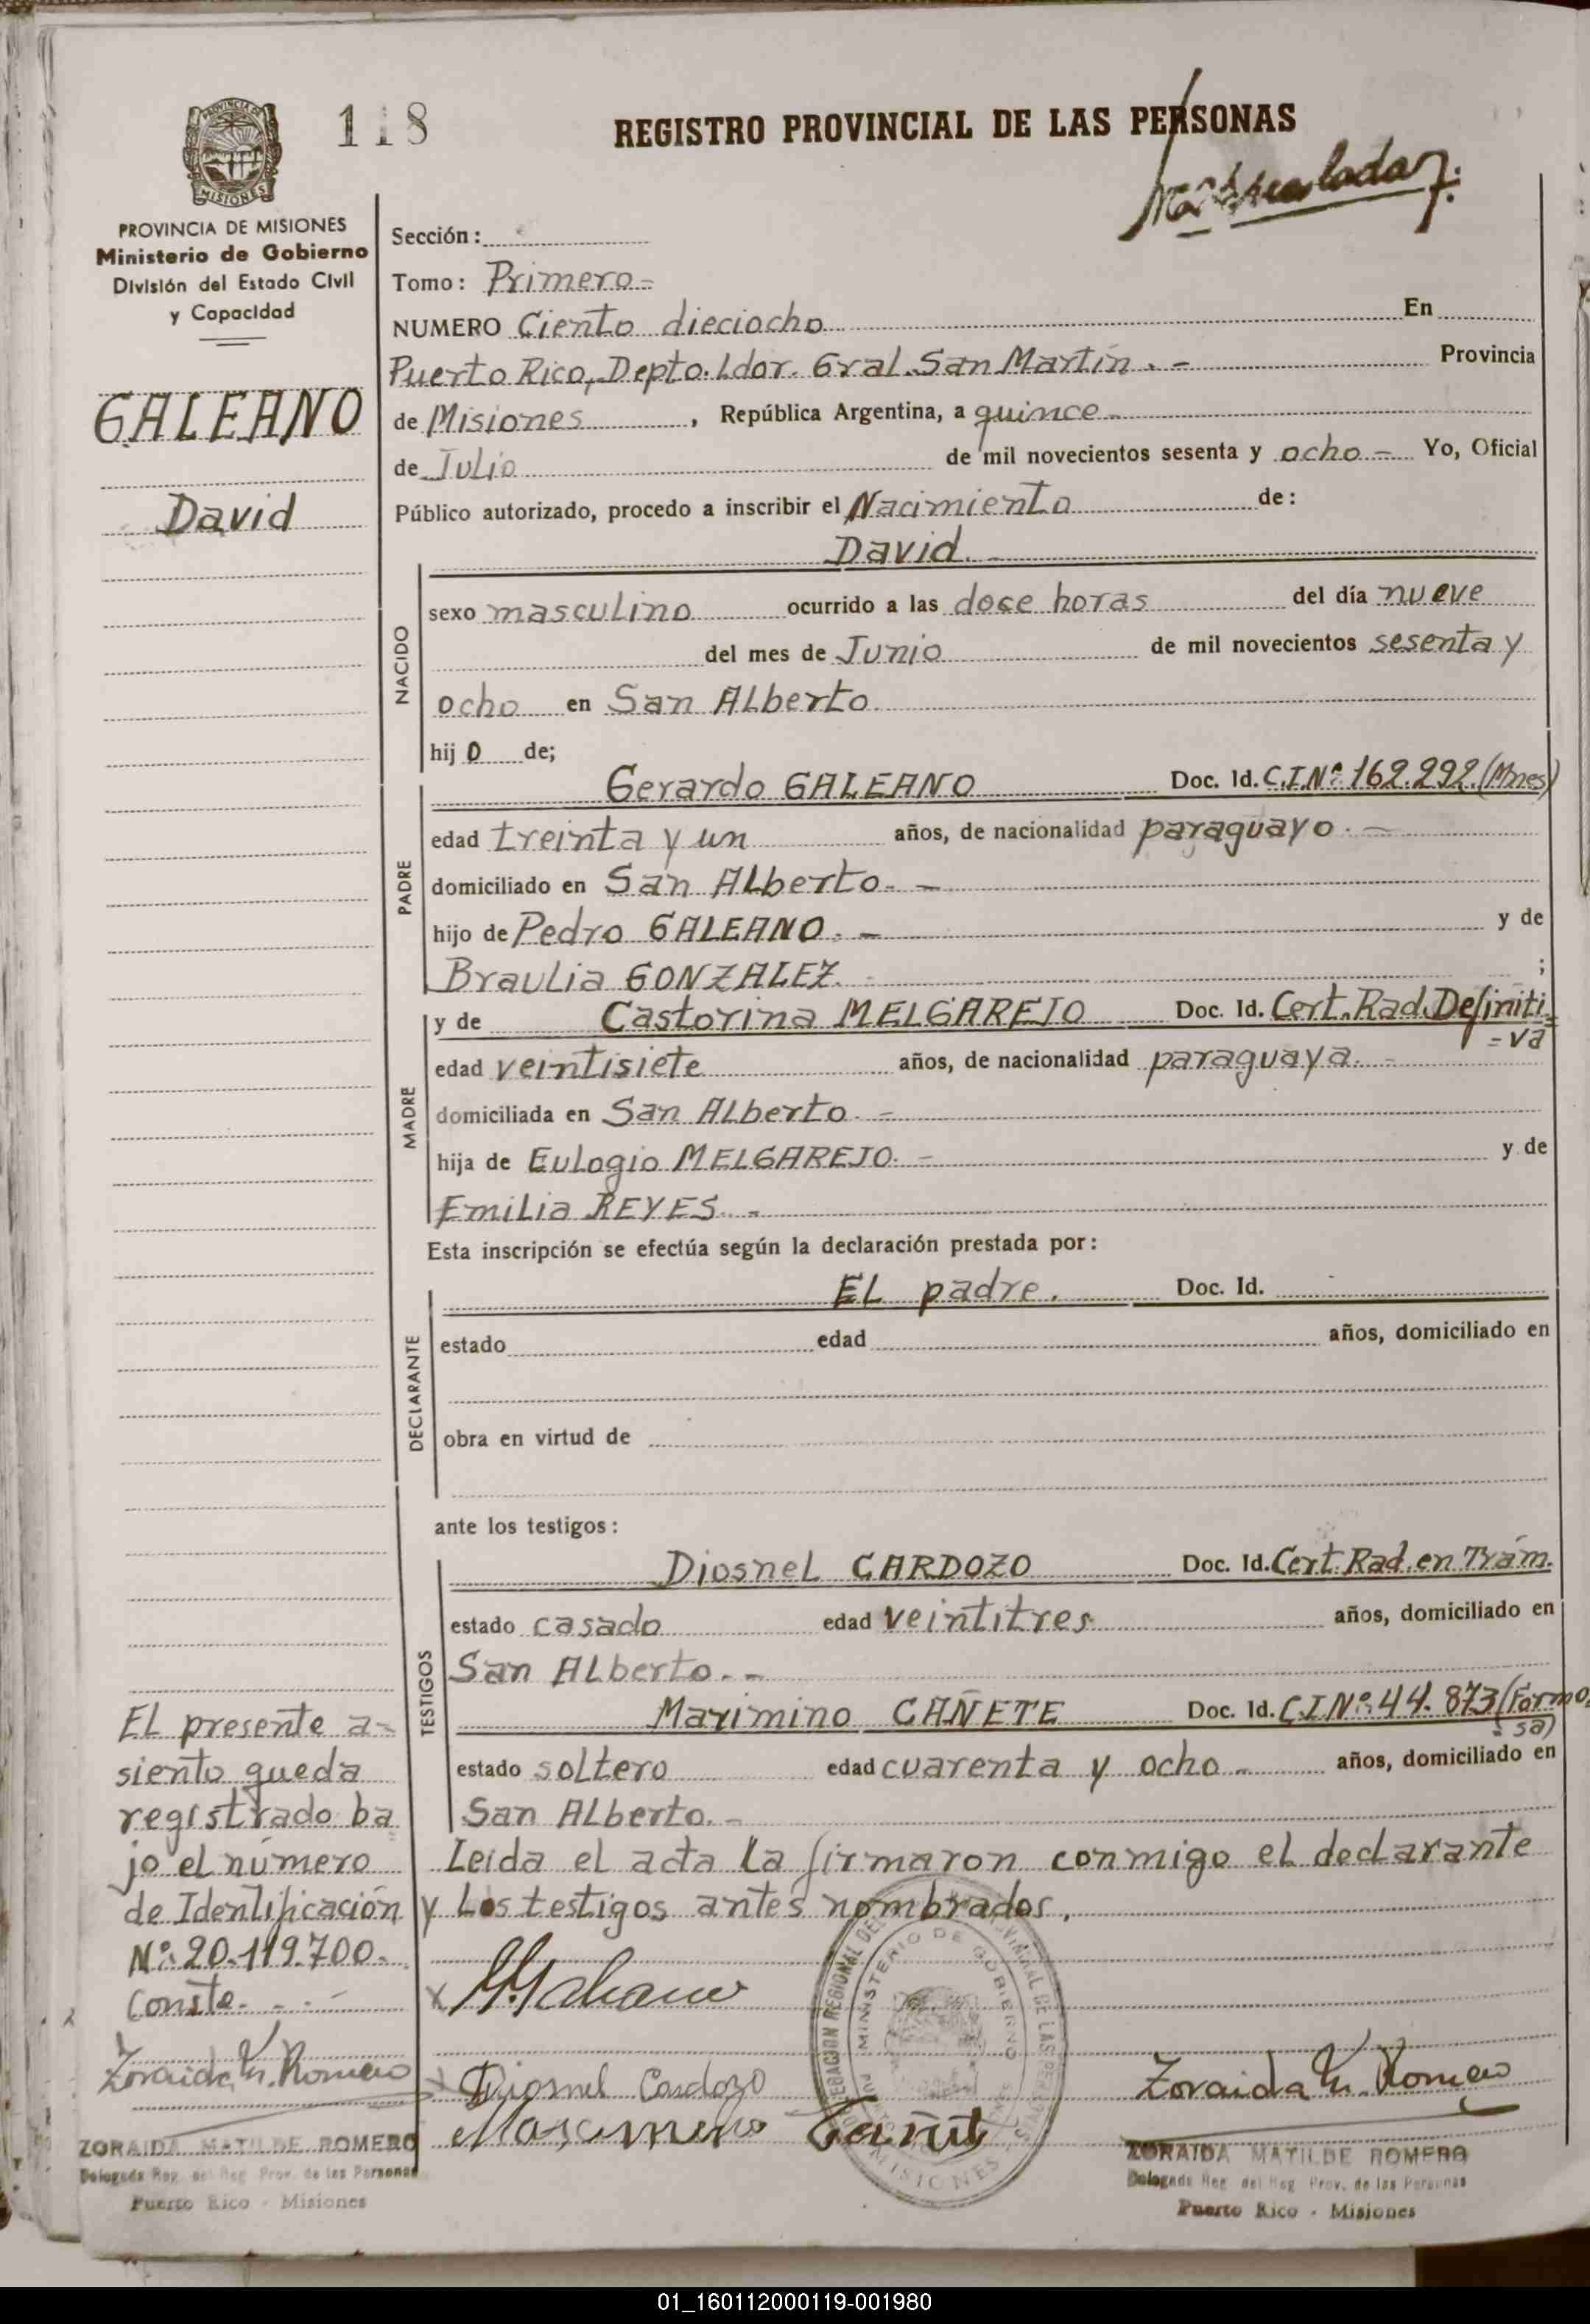 118
REGISTRO PROVINCIAL DE LAS PERSONAS
MISIONES
PROVINCIA DE MISIONES
Ministerio de Gobierno
División del Estado Civil
y Capacidad
GALEANO
David
Sección:
Tomo: Primero=
NUMERO Ciento dieciocho En
Puerto Rico, Depto. Ldor. Gral. San Martín. - Provincia
de Misiones, República Argentina, a quince
de Julio de mil novecientos sesenta y ocho - Yo, Oficial
Público autorizado, procedo a inscribir el Nacimiento de:
David. -
NACIDO
sexo masculino ocurrido a las doce horas del día nueve
del mes de Junio de mil novecientos sesenta y
ocho en San Alberto
hij o de;
PADRE
Gerardo GALEANO Doc. Id. C.I.Nº 162.292.(Mnes)
edad treinta y un años, de nacionalidad paraguayo. -
domiciliado en San Alberto. -
hijo de Pedro GALEANO. - y de
Braulia GONZALEZ. - ;
MADRE
y de Castorina MELGAREJO Doc. Id. Cert. Rad. Definiti
=va
edad veintisiete años, de nacionalidad paraguaya. -
domiciliada en San Alberto. =
hija de Eulogio MELGAREJO. - y de
Emilia REYES. -
Esta inscripción se efectúa según la declaración prestada por:
DECLARANTE
El padre. Doc. Id.
estado edad años, domiciliado en
obra en virtud de
ante los testigos:
TESTIGOS
Diosnel CARDOZO Doc. Id. Cert. Rad. en Trám.
estado casado edad veintitres años, domiciliado en
San Alberto. -
Maximino CAÑETE Doc. Id. C.I.Nº 44.873 (Formo
= sa)
estado soltero edad cuarenta y ocho - años, domiciliado en
San Alberto. -
Leída el acta la firmaron conmigo el declarante
y los testigos antes nombrados.
El presente a=
siento queda
registrado ba
jo el número
de Identificación
Nº 20.119.700.
Conste. - . -
Zoraida M. Romero
ZORAIDA MATILDE ROMERO
Delegada Reg. del Reg. Prov. de las Personas
Puerto Rico - Misiones
X G. Galeano
X Diosnel Cardozo
Maximino Cañete
MINISTERIO DE GOBIERNO
MISIONES
Zoraida M. Romero
ZORAIDA MATILDE ROMERO
Delegada Reg. del Reg. Prov. de las Personas
Puerto Rico - Misiones
01_160112000119-001980